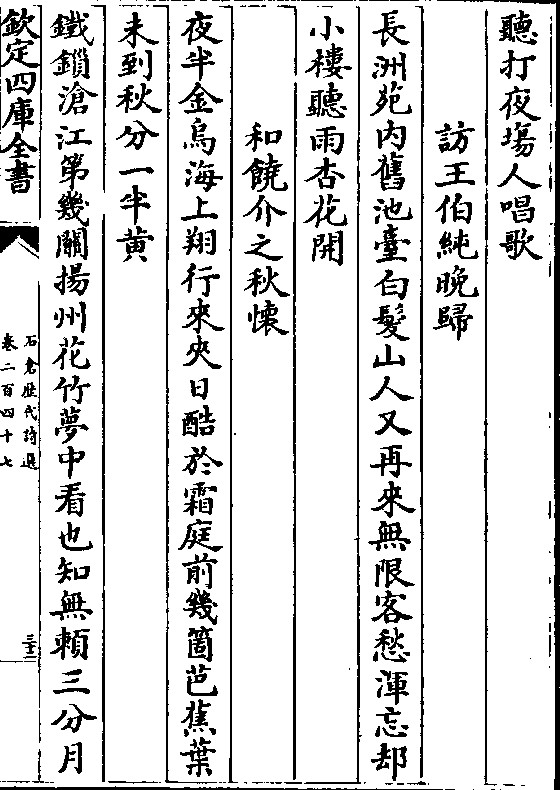 聽打夜場人唱歌
訪王伯純晚歸
長洲苑内舊池臺白髮山人又再來無限客愁渾忘却
小樓聽雨杏花開
和饒介之秋懷
夜半金烏海上翔行來夾日酷於霜庭前幾箇芭蕉葉
未到秋分一半黄
鐵鎖滄江第幾關揚州花竹夢中看也知無頼三分月
欽定四庫全書
石倉歴代詩選
卷二百四十七
三十三